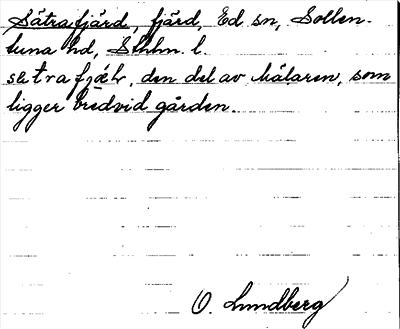 Sätrafjärd, fjärd, Ed sn, Sollen-
tuna hd, Sthlm. l.
den del av Mälaren, som
ligger bredvid gården.
O. Lundberg